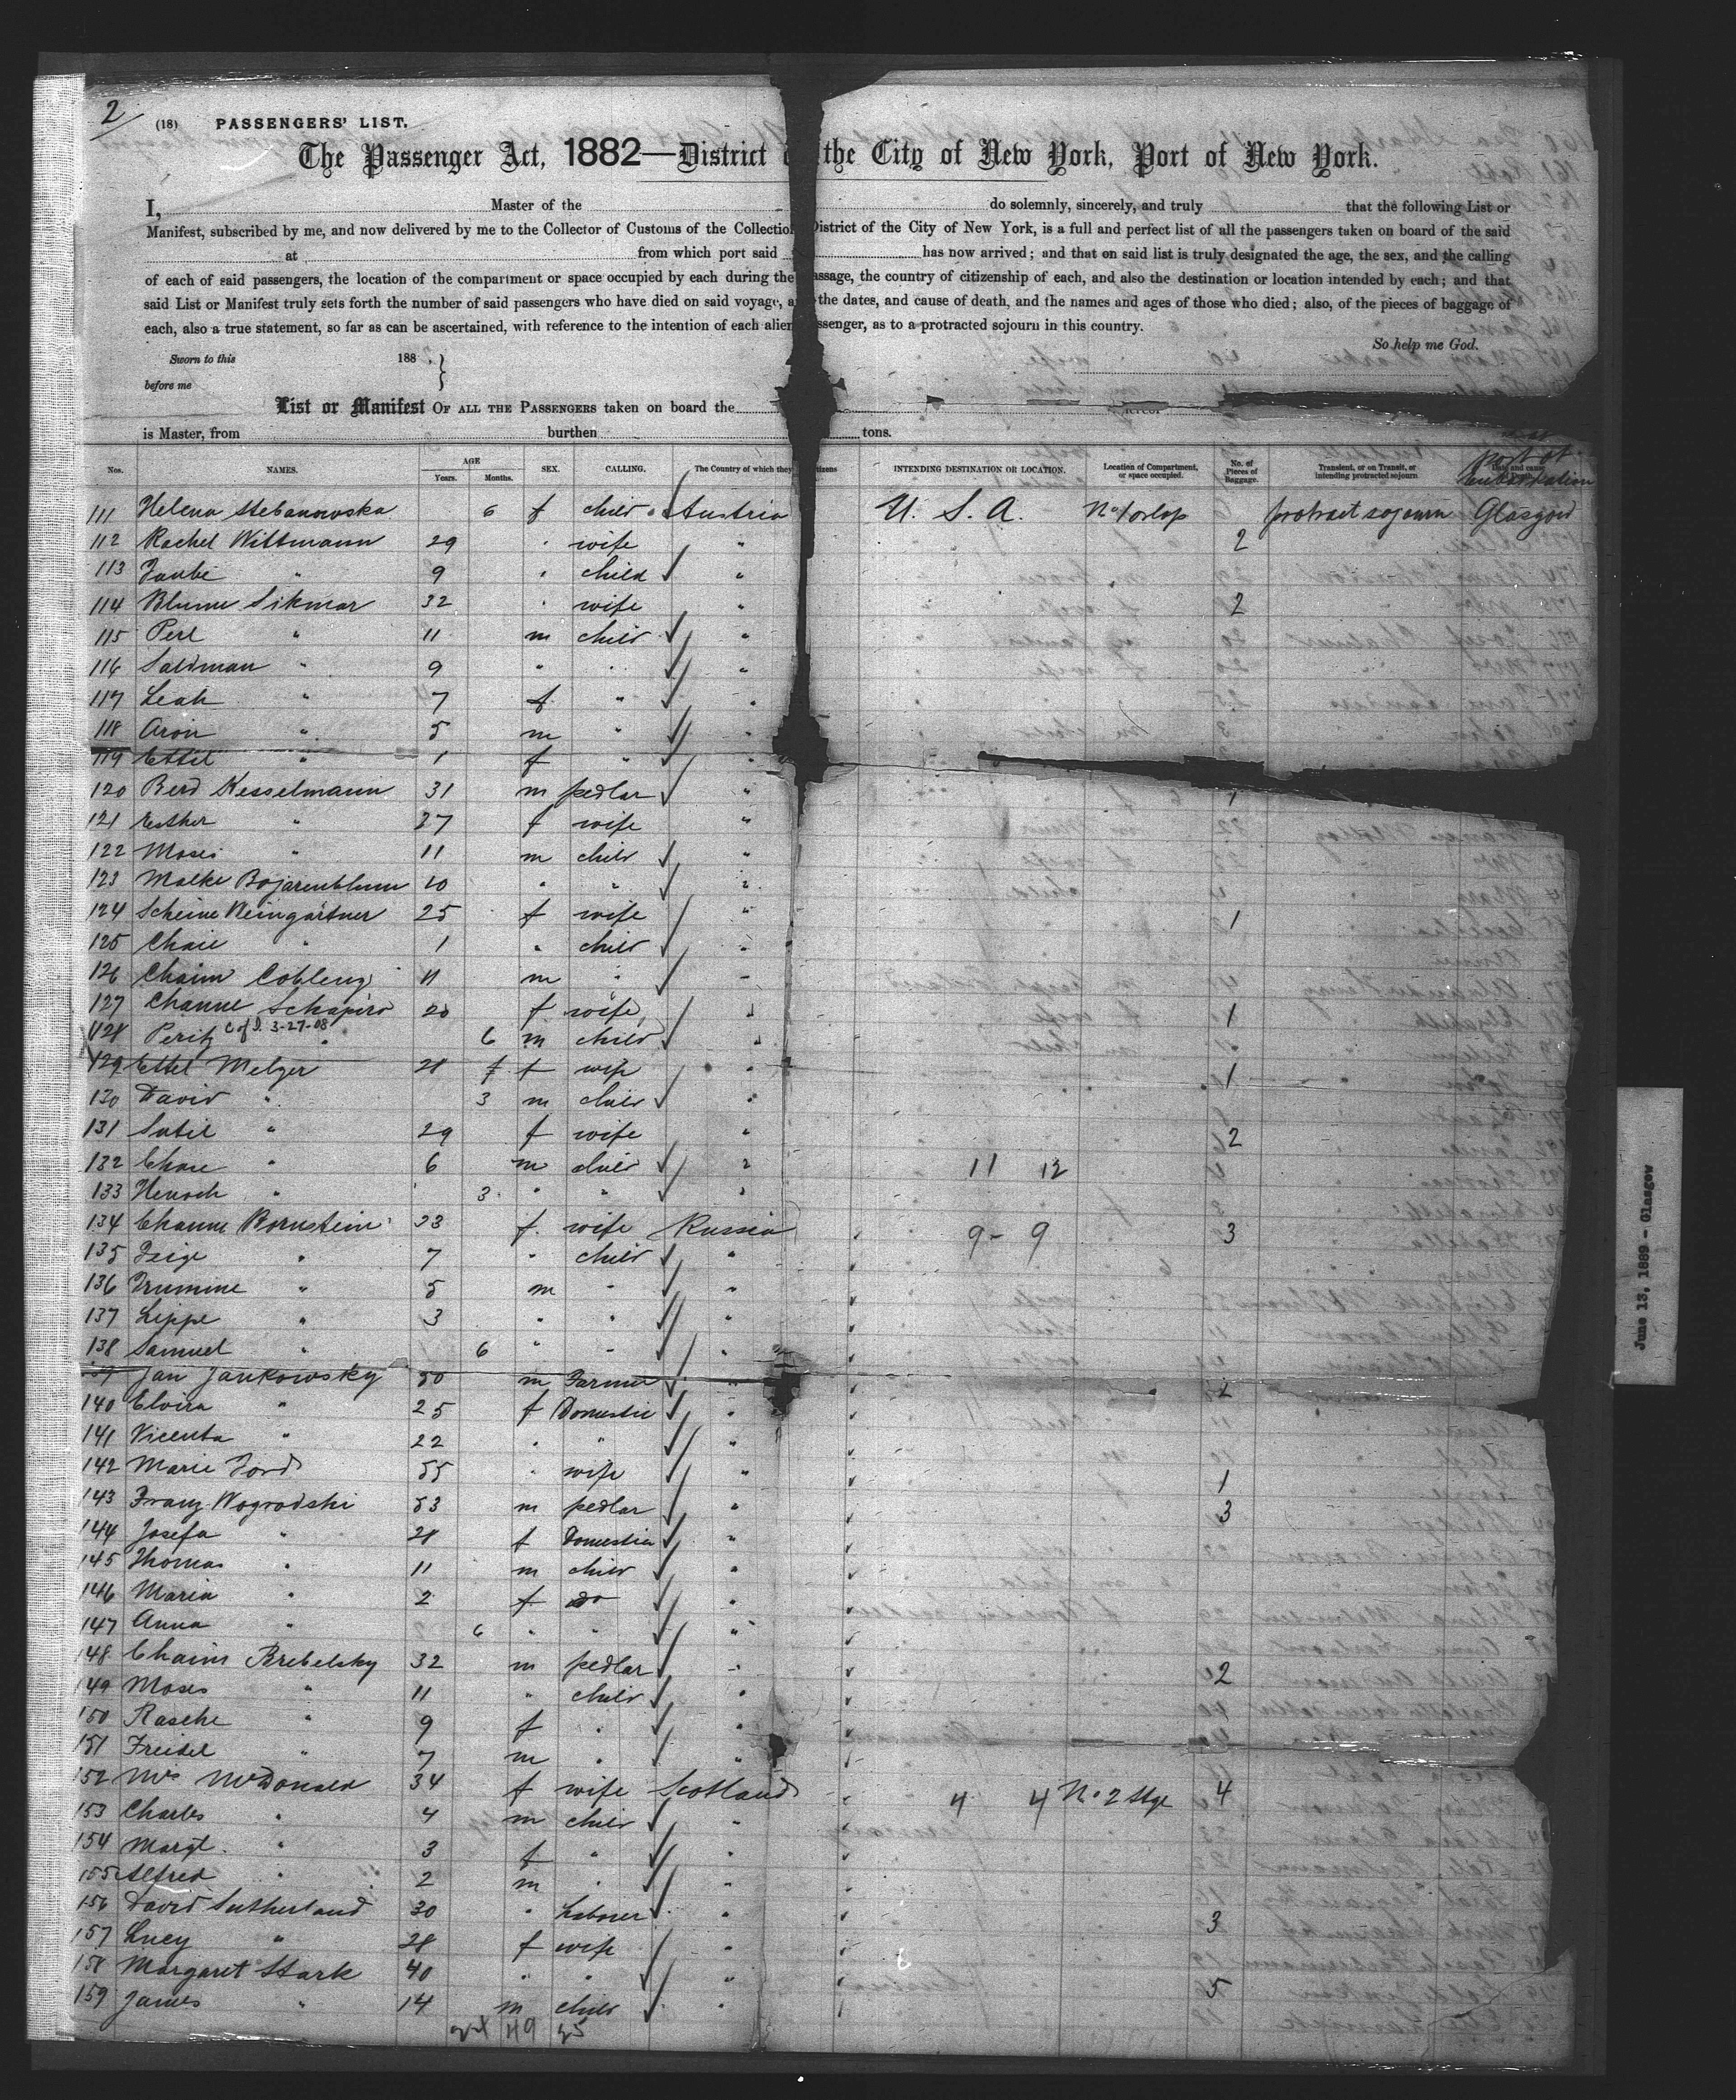 2
(18) PASSENGERS' LIST.
The Passenger Act, 1882—District the City of New York, Port of New York.
I, Master of the do solemnly, sincerely, and truly that the following List or
Manifest, subscribed by me, and now delivered by me to the Collector of Customs of the Collection District of the City of New York, is a full and perfect list of all the passengers taken on board of the said
at from which port said has now arrived; and that on said list is truly designated the age, the sex, and the calling
of each of said passengers, the location of the compartment or space occupied by each during the passage, the country of citizenship of each, and also the destination or location intended by each; and that
said List or Manifest truly sets forth the number of said passengers who have died on said voyage, and the dates, and cause of death, and the names and ages of those who died; also, of the pieces of baggage of
each, also a true statement, so far as can be ascertained, with reference to the intention of each alien passenger, as to a protracted sojourn in this country.
So help me God.
Sworn to this 188 .
before me
List or Manifest OF ALL THE PASSENGERS taken on board the
is Master, from burthen tons.
port of Embarkation
Nos. NAMES. AGE Years. Months. SEX. CALLING. The Country of which they citizens INTENDING DESTINATION OR LOCATION. Location of Compartment, or space occupied. No. of Pieces of Baggage. Transient, or on Transit, or intending protracted sojourn Date and cause
111 Helena Stebanowska 6 f child Austria U. S. A. No 1 orlop protract sojourn Glasgow
112 Rachel Wittmann 29 " wife " 2
113 Taube " 9 " child "
114 Blume Sikmar 32 " wife " 2
115 Perl " 11 m child "
116 Saldman " 9 " " "
117 Leah " 7 f " "
118 Aron " 5 m " "
119 Ettel " 1 f " "
120 Berd Kesselmann 31 m pedlar " 1
121 Esther " 27 f wife "
122 Moses " 11 m child "
123 Malke Bojarenblum 10 " " "
124 Scheine Weingartner 25 f wife " 1
125 Chaie " 1 " child "
126 Chaim Coblenz 11 m " "
127 Channe Schapiro 20 f wife " 1
128 Peritz C of I. 3-27-08 " 6 m child "
129 Ettel Melzer 28 f f wife " 1
130 David " 3 m child "
131 Sutel " 29 f wife " 2
132 Chare " 6 m child " 11 12
133 Henoch " 3 " " "
134 Channe Bornstein 33 f wife Russia 9 - 9 3
135 Feige " 7 " child "
136 Frumine " 5 m " "
137 Lippe " 3 " " "
138 Samuel " 6 " " "
139 Jan Jankowsky 50 m Farmer " 2
140 Elvira " 25 f Domestic "
141 Vicenta " 22 " " "
142 Marie Ford 55 " wife " 1
143 Franz Wogrodski 53 m pedlar " 3
144 Josefa " 28 f Domestic "
145 Thomas " 11 m child "
146 Maria " 2 f do "
147 Anna " 6 " " "
148 Chaim Brebelsky 32 m pedlar " 2
149 Moses " 11 " child "
150 Rasche " 9 f " "
151 Freidel " 7 m " "
152 Mrs McDonald 34 f wife Scotland 4 4 No 2 Stge 4
153 Charles " 4 m child "
154 Margt. " 3 f " "
155 Alfred " 2 m " "
156 David Sutherland 30 " Laborer " 3
157 Lucy " 28 f wife "
158 Margaret Stark 40 " " "
159 James " 14 m child " 5
49 25
June 13, 1889 - Glasgow